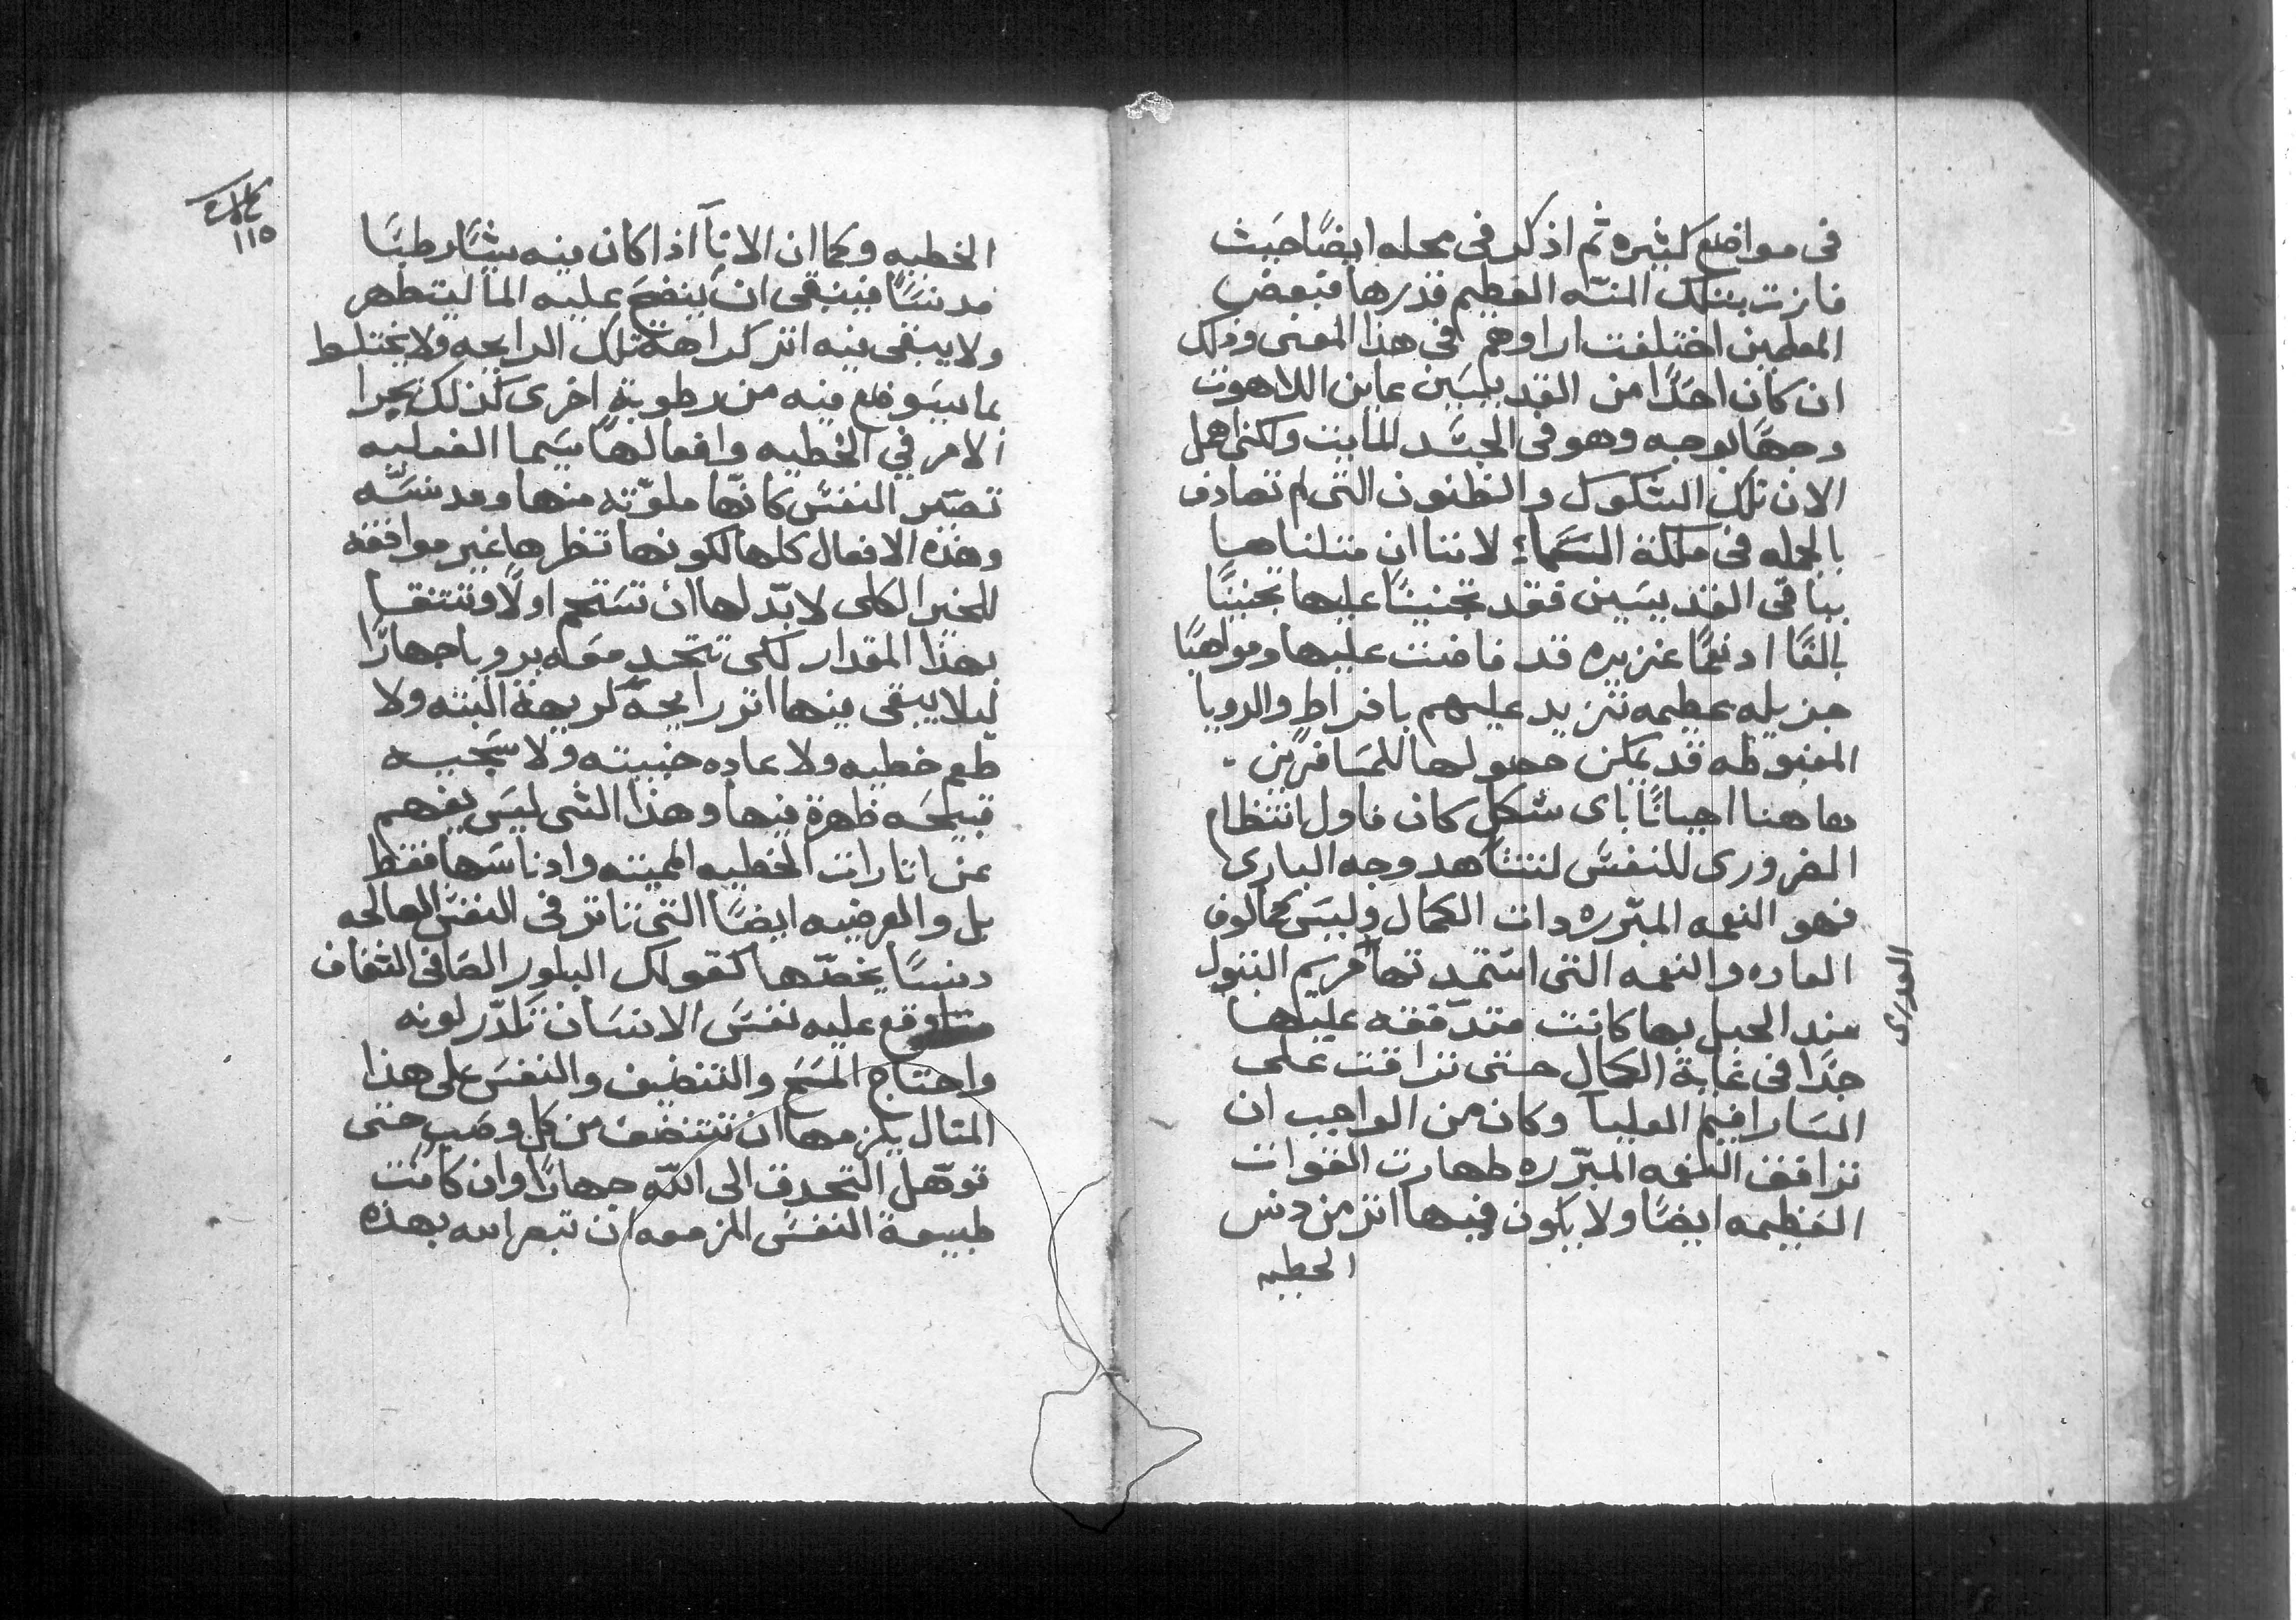 في مواضع كثيره ثم اذكر في محله ايضًا حَيث
فازت بتلك المنّه العظيم قدرها فبعض
المعلمين اختلفت اراوهم في هذا المعنى وذلك
ان كان احَدًا من القديسَين عاين اللاهوت
وجهًا بوجه وهو في الجسَد المايت ولكني اهمل
الان تلك الشكوك والظنون التي لم تصادف
بالجمله في ملكة السَماءِ لاننا ان مثلناها
بباقي القديسَين فقد تجنينا عليها تجنيًا
بالغًا اذ نعمًا غزيره قد فاضت عليها ومواهبًا
جزيله عظيمه تزيد عليهم بافراط والرويا
المغبوطه قد يمكن حصولها للمسَافرين
هاهنا احيانًا باى شكل كان فاول انتظام
الضرورى للنفسَ لتشاهد وجه البارى
فهو النعمه المبرّره ذات الكمال وليسَ كمالوف
العاده والنعمه التي استمدتها مريم البتول
العذرى
منذ الحبل بها كانت متدفقه عليها
جدًا في غاية الكمال حتى تراقت على
السَارافيم العليا وكان من الواجب ان
ترافق النعمه المبرّره طهارت القوات
العَظيمه ايضًا ولا يكون فيها اثر من دنس
الخطيه
١١٥
الخطيه وكما ان الاناَ اذا كان فيه شيًا رطبًا
مدنسًا فينبغى ان ينضحَ عليه الما ليتطهر
ولا يبقى فيه اثر كراهة تلك الرايحه ولا يختلط
بما سيَوضع فيه من رطوبةٍ اخرى كذلك يجرا
الامر في الخطيه وافعالها سيَما الفعليه
تصيّر النفسَ كانّها ملوّثه منها ومدنسَّه
وهذه الافعال كلها لكونها تظهرها غير موافقه
للخير الكلى لا بدّ لها ان تسَتحم اولًا وتتنقا
بهذا المقدار لكى تتحد معَه برويا جهارًا
ليلا يبقى فيها اثر رايحةً كريهة البته ولا
طعم خطيه ولا عاده خبيثه ولا سَجيه
قبيحَه ظهرة فيها وهذا الشى ليسَ يفهم
عن اثارات الخطيه المميته وادناسَها فقط
بل والعرضيه ايضًا التي تاثر في النفسَ الصالحه
دنسًا يخصّها كقولك البلور الصَافى الشفاف
وقع عليه نفسَ الانسَان تَكدّر لونه
واحتاج المسَح والتنضيف والنفسَ على هذا
المثال يلزمها ان تتنضف من كل وصَب حتى
توهّل التحدق الى اللّه جهارًا وان كانت
طبيعة النفسَ المزمعه ان تبصر الله بهذه